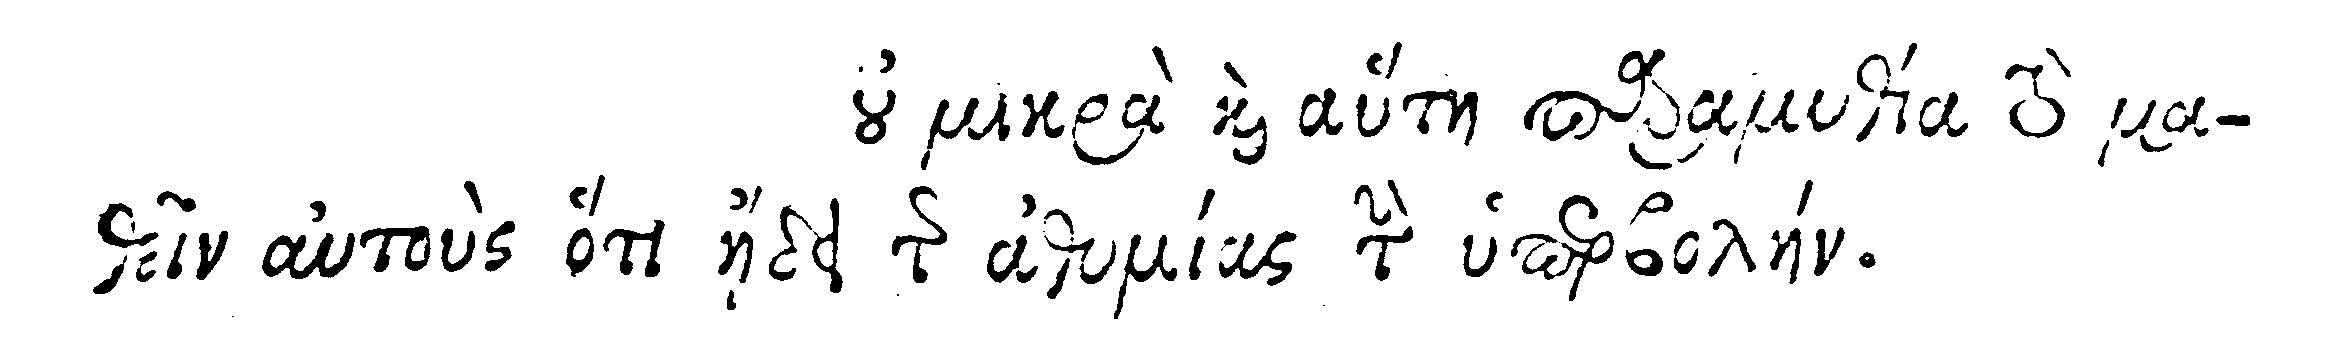 οὐ μικρὰ καὶ αὕτη παραμυθία τὸ μα-
θεῖν αὐτοὺς ὅτι ᾔδει τῆς ἀθυμίας τὴν ὑπερβολήν.